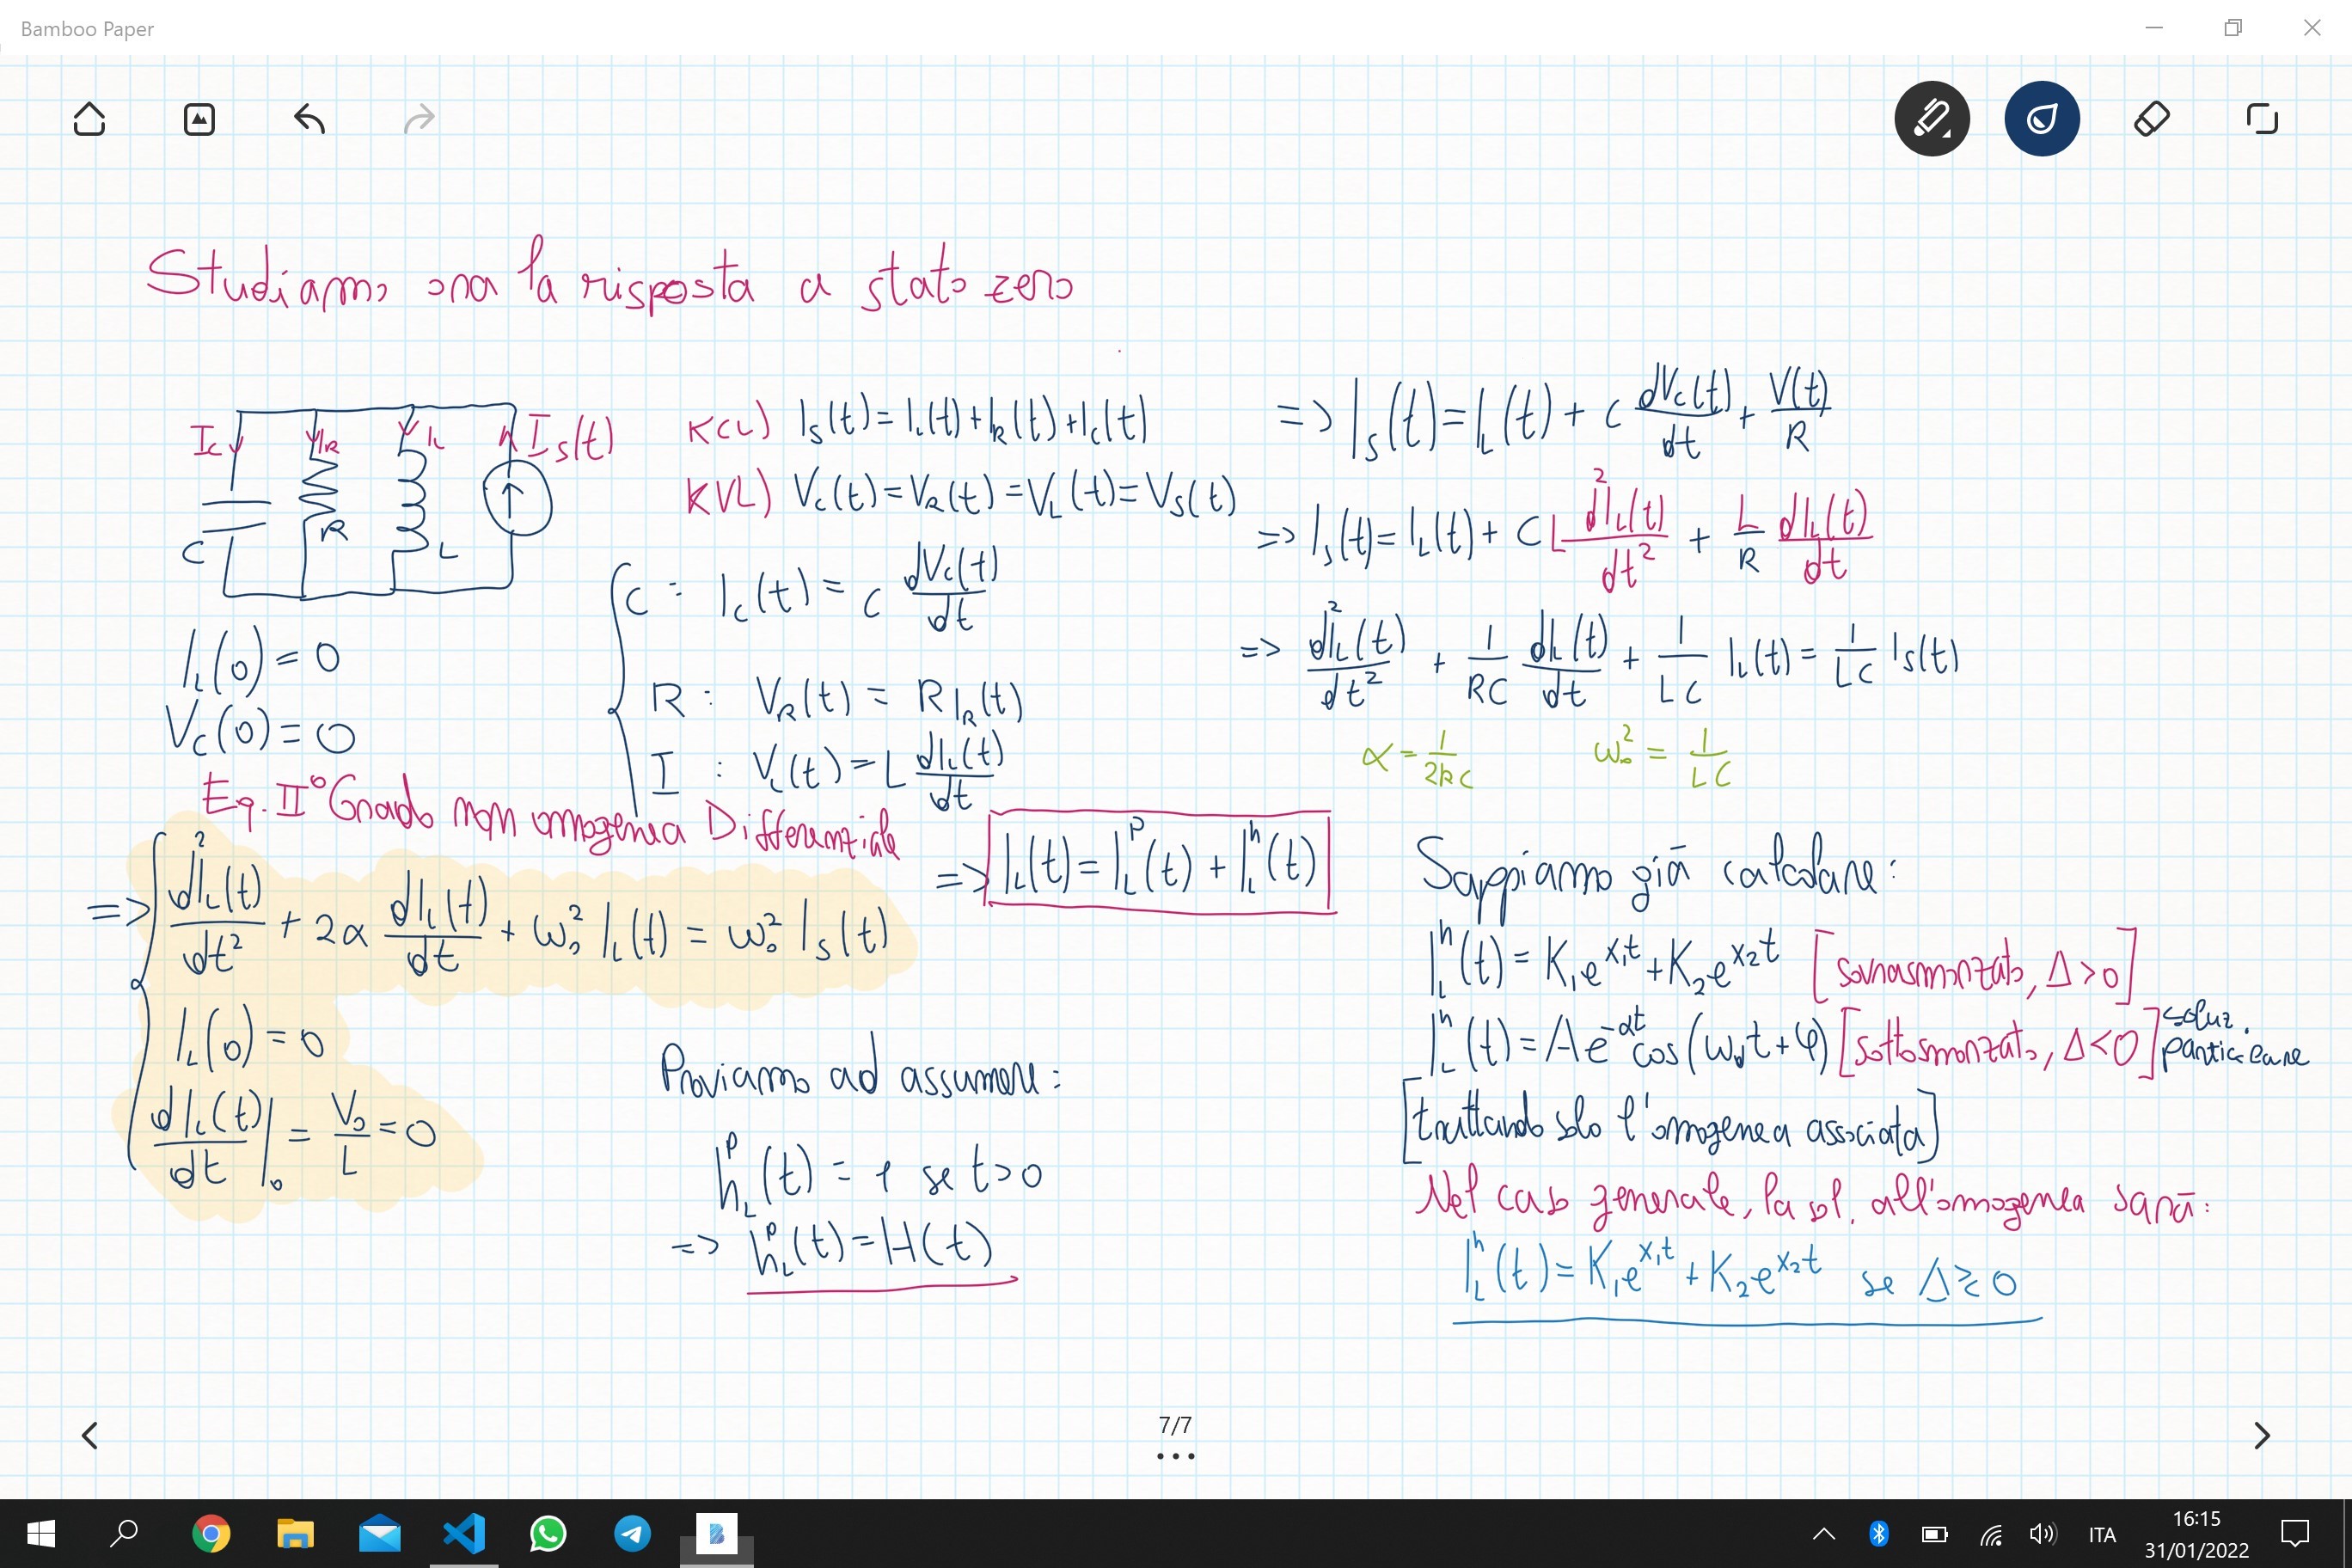 Bamboo Paper
Studiamo ora la risposta a stato zero
Ic IR IL Is(t)
C R L
KCL) Is(t) = IL(t) + IR(t) + Ic(t)
KVL) Vc(t) = VR(t) = VL(t) = Vs(t)
C : Ic(t) = C dVc(t)/dt
R : VR(t) = R IR(t)
I : VL(t) = L dIL(t)/dt
IL(0) = 0
Vc(0) = 0
=> Is(t) = IL(t) + C dVc(t)/dt + V(t)/R
=> Is(t) = IL(t) + CL d²IL(t)/dt² + L/R dIL(t)/dt
=> d²IL(t)/dt² + 1/RC dIL(t)/dt + 1/LC IL(t) = 1/LC Is(t)
α = 1/2RC ω₀² = 1/LC
Eq. II° Grado non omogenea Differenziale
=> d²IL(t)/dt² + 2α dIL(t)/dt + ω₀² IL(t) = ω₀² Is(t)
IL(0) = 0
dIL(t)/dt |₀ = V₀/L = 0
=> IL(t) = ILᵖ(t) + ILʰ(t)
Proviamo ad assumere:
hLᵖ(t) = 1 se t>0
=> hLᵖ(t) = H(t)
Sappiamo già calcolare:
ILʰ(t) = K₁e^x₁t + K₂e^x₂t [sovrasmorzato, Δ>0]
ILʰ(t) = Ae^-αt cos(ωdt+φ) [sottosmorzato, Δ<0] soluz. particolare
[trattando solo l'omogenea associata]
Nel caso generale, la sol. all'omogenea sarà:
ILʰ(t) = K₁e^x₁t + K₂e^x₂t se Δ≥0
7/7
ITA
16:15
31/01/2022